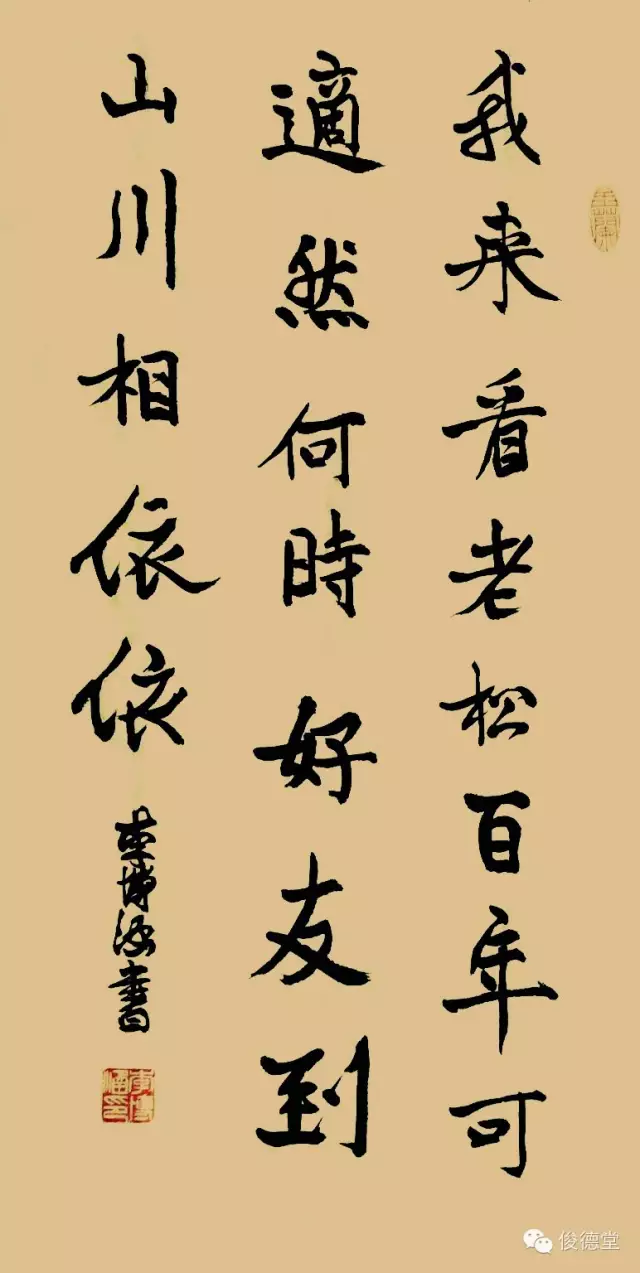 我来看老松百年可
適然何時好友到
山川相依依
車博海書
俊德堂